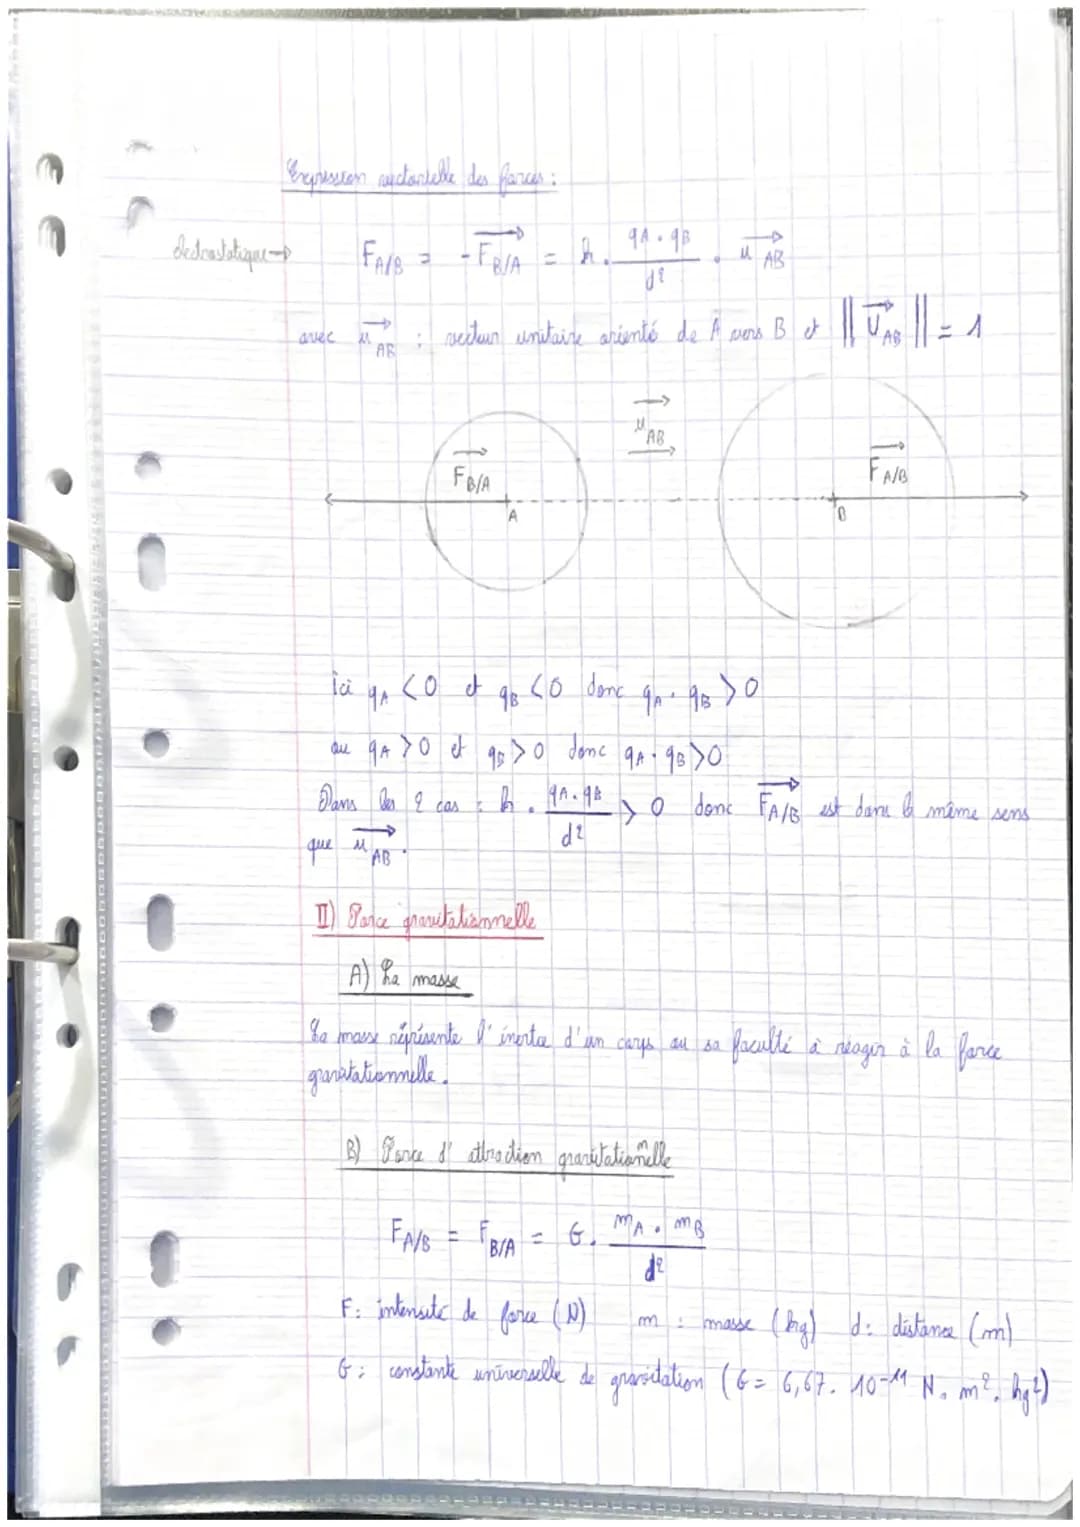 Expression vectorielle des forces :
électrostatique → F A/B = - F B/A = k . qA . qB / d² . u AB
avec u AB : vecteur unitaire orienté de A vers B et || U AB || = 1
u AB
F B/A
F A/B
A
B
ici qA < 0 et qB < 0 donc qA . qB > 0
ou qA > 0 et qB > 0 donc qA . qB > 0
Dans les 2 cas : k . qA . qB / d² > 0 donc F A/B est dans le même sens
que u AB .
II) Force gravitationnelle
A) La masse
La masse représente l'inertie d'un corps ou sa faculté à réagir à la force
gravitationnelle .
B) Force d'attraction gravitationnelle
F A/B = F B/A = G . mA . mB / d²
F : intensité de force (N) m : masse (kg) d : distance (m)
G : constante universelle de gravitation (G = 6,67 . 10⁻¹¹ N . m² . kg²)